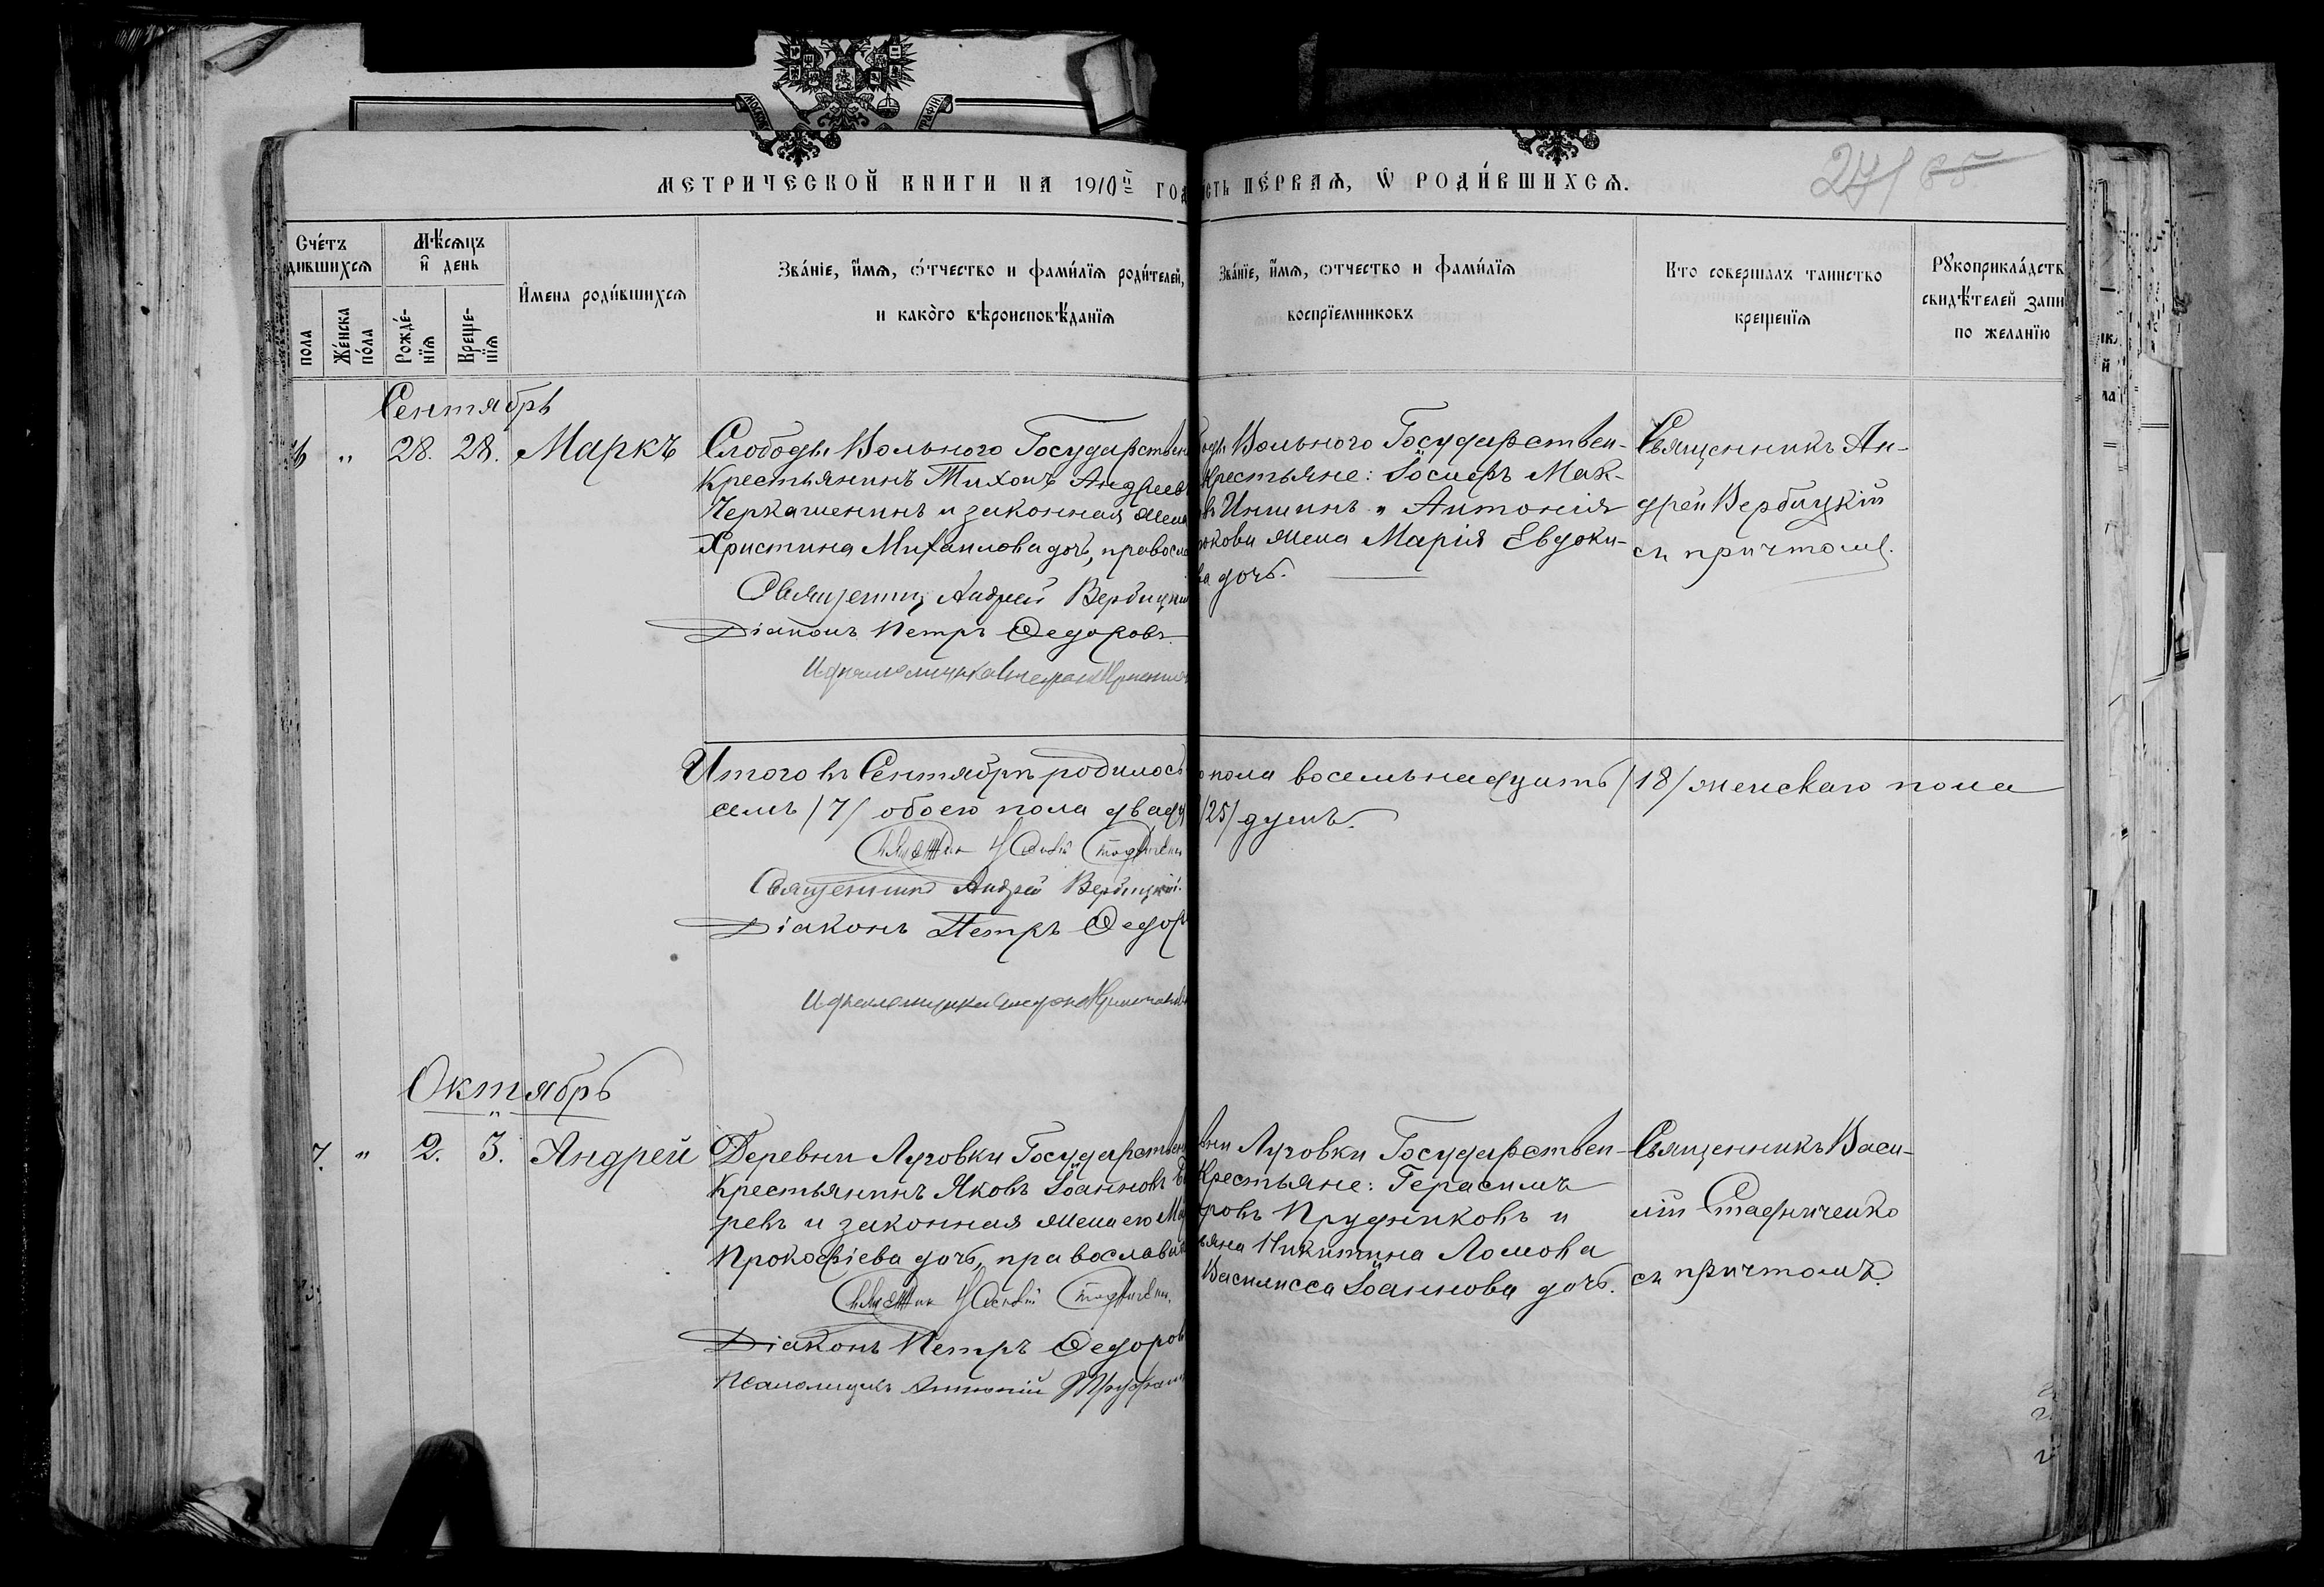 МЕТРИЧЕСКОЙ КНИГИ НА 1910й ГОД
СТЬ ПЕ́РВАѦ, Ѡ РОДИ́ВШИХСѦ.
27/ 65
Сче́тъ
дившихсѧ
Мѣ́сѧцъ
и҆ день
пола
Же́нска
по́ла
Рожде́-
нїѧ
Креще-
нїѧ
И҆мена роди́вшихсѧ
Зва́нїе, и҆́мѧ, ѻ҆́тчество и фами́лїѧ роди́телей,
и како́го вѣроисповѣ́данїѧ
Зва́нїе, и҆́мѧ, ѻтчество и фами́лїѧ
воспрїемниковъ
Кто соверша́лъ таинство
крещенїѧ
Рꙋкоприкла́дств
свидѣ́телей запи
по желанїю
Сентябрь
6 " 28. 28. Маркъ
Слободы Вольного Государствен
Крестьянинъ Тихонъ Андреев
Черкашенинъ и законная жена
Христина Михаилова дочь, правосла
Священникъ Андрей Вербицкій
Діаконъ Петръ Ѳедоровъ.
оды Вольного Государствен-
Крестьяне: Іосифъ Мак-
въ Иншинъ и Антонія
рюкова жена Марія Евдоки-
ва дочь.
Священникъ Ан-
дрей Вербицкій
съ причтомъ.
Итого въ Сентябрѣ родилось
о пола восемьнадцать /18/ женскаго пола
семь /7/ обоего пола двадц
/25/ душъ.
Священникъ Андрей Вербицкій.
Діаконъ Петръ Ѳедор
Октябрь
7. " 2. 3. Андрей
Деревни Луговки Государствен
Крестьянинъ Яковъ Іоанновъ
ревъ и законная жена его Ма
Прокофіева дочь, православн
Діаконъ Петръ Ѳедоров
Псаломщикъ Антоній
вни Луговки Государствен-
Крестьяне: Герасимъ
ровъ Прудниковъ и
ьяна Никитина Ломова
Василисса Іоаннова дочь.
Священникъ Васи-
лій Стафиченко
съ причтомъ.